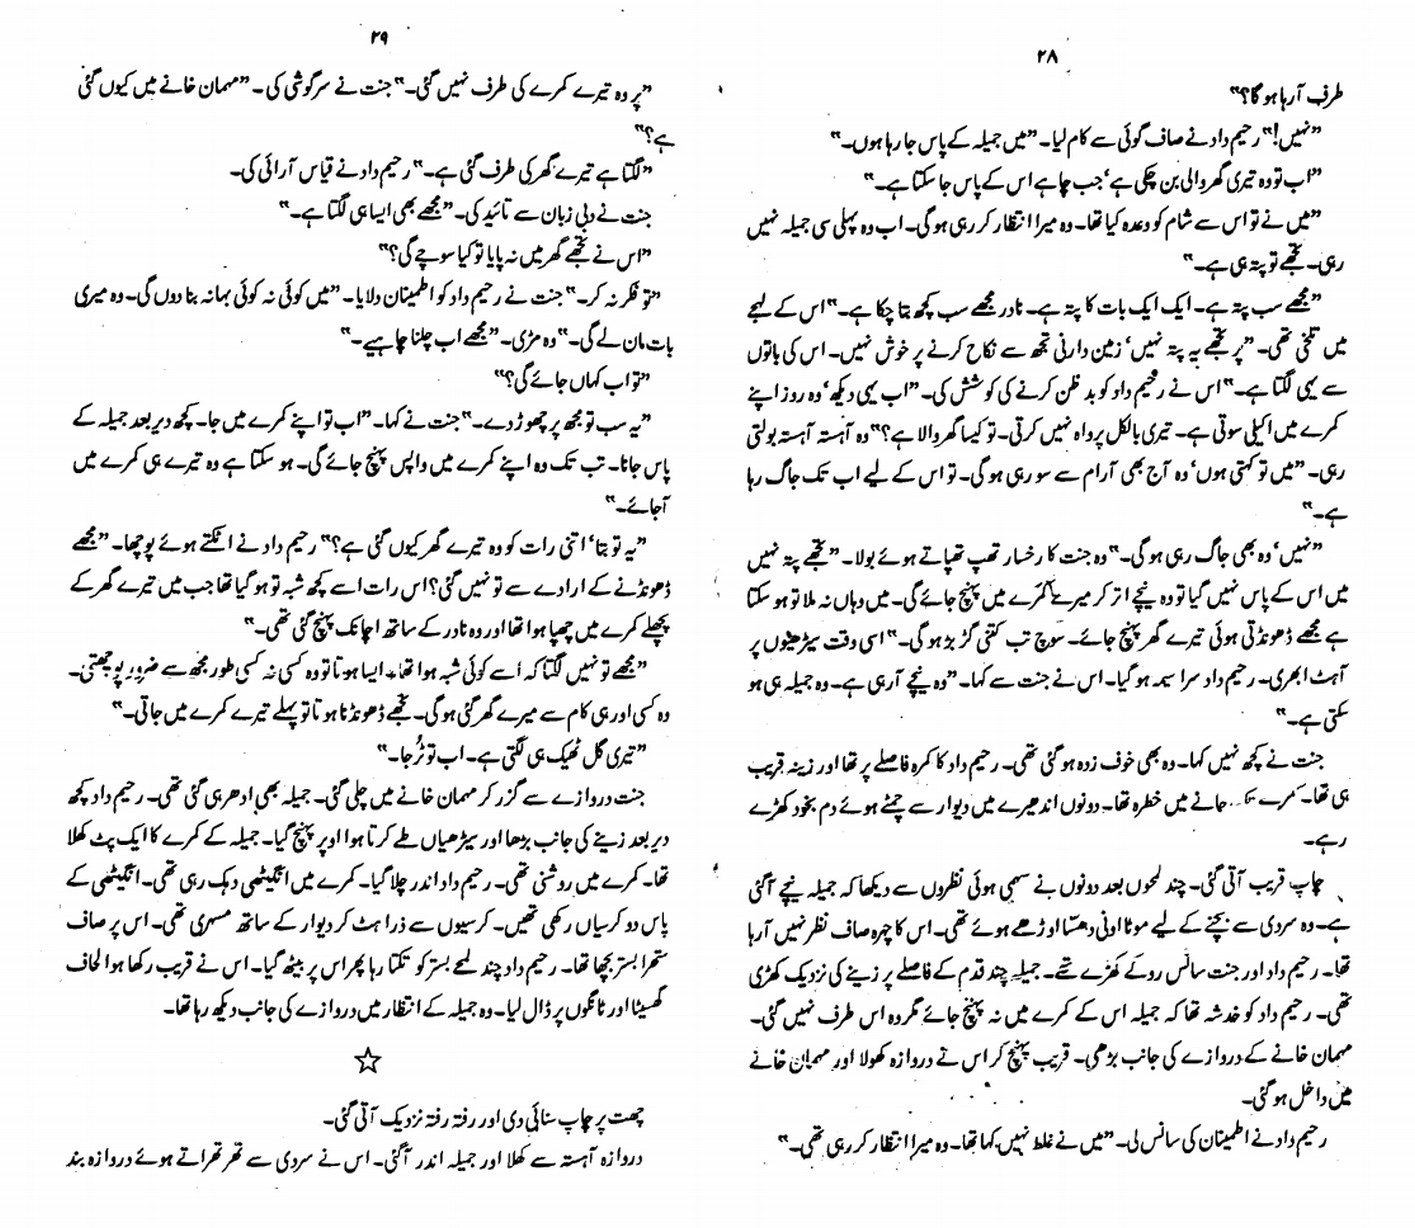 ۲۸
طرف آرہا ہو گا؟"
"نہیں!" رحیم داد نے صاف گوئی سے کام لیا۔ "میں جمیلہ کے پاس جا رہا ہوں۔"
"اب تو وہ تیری گھر والی بن چکی ہے' جب چاہے اس کے پاس جا سکتا ہے۔"
"میں نے تو اس سے شام کو وعدہ کیا تھا۔ وہ میرا انتظار کر رہی ہو گی۔ اب وہ پہلی سی جمیلہ نہیں
رہی۔ تجھے تو پتہ ہی ہے۔"
"مجھے سب پتہ ہے۔ ایک ایک بات کا پتہ ہے۔ نادر مجھے سب کچھ بتا چکا ہے۔" اس کے لہجے
میں تلخی تھی۔ "پر تجھے یہ پتہ نہیں' زمین دارنی تجھ سے نکاح کرنے پر خوش نہیں۔ اس کی باتوں
سے یہی لگتا ہے۔" اس نے رحیم داد کو بد ظن کرنے کی کوشش کی۔ "اب یہی دیکھ' وہ روز اپنے
کمرے میں اکیلی سوتی ہے۔ تیری بالکل پرواہ نہیں کرتی۔ تو کیسا گھر والا ہے؟" وہ آہستہ آہستہ بولتی
رہی۔ "میں تو کہتی ہوں' وہ آج بھی آرام سے سو رہی ہو گی۔ تو اس کے لیے اب تک جاگ رہا
ہے۔"
"نہیں' وہ بھی جاگ رہی ہو گی۔" وہ جنت کا رخسار تھپ تھپاتے ہوئے بولا۔ "تجھے پتہ نہیں
میں اس کے پاس نہیں گیا تو وہ نیچے اتر کر میرے کمرے میں پہنچ جائے گی۔ میں وہاں نہ ملا تو ہو سکتا
ہے مجھے ڈھونڈتی ہوئی تیرے گھر پہنچ جائے۔ سوچ تب کتنی گڑ بڑ ہو گی۔" اسی وقت سیڑھیوں پر
آہٹ ابھری۔ رحیم داد سراسیمہ ہو گیا۔ اس نے جنت سے کہا۔ "وہ نیچے آ رہی ہے۔ وہ جمیلہ ہی ہو
سکتی ہے۔"
جنت نے کچھ نہیں کہا۔ وہ بھی خوف زدہ ہو گئی تھی۔ رحیم داد کا کمرہ فاصلے پر تھا اور زینہ قریب
ہی تھا۔ کمرے تک جانے میں خطرہ تھا۔ دونوں اندھیرے میں دیوار سے چمٹے ہوئے دم بخود کھڑے
رہے۔
چاپ قریب آتی گئی۔ چند لمحوں بعد دونوں نے سہمی ہوئی نظروں سے دیکھا کہ جمیلہ نیچے آ گئی
ہے۔ وہ سردی سے بچنے کے لیے موٹا اونی دھسّا اوڑھے ہوئے تھی۔ اس کا چہرہ صاف نظر نہیں آ رہا
تھا۔ رحیم داد اور جنت سانس روکے کھڑے تھے۔ جمیلہ چند قدم کے فاصلے پر زینے کی نزدیک کھڑی
تھی۔ رحیم داد کو خدشہ تھا کہ جمیلہ اس کے کمرے میں نہ پہنچ جائے مگر وہ اس طرف نہیں گئی۔
مہمان خانے کے دروازے کی جانب بڑھی۔ قریب پہنچ کر اس نے دروازہ کھولا اور مہمان خانے
میں داخل ہو گئی۔
رحیم داد نے اطمینان کی سانس لی۔ "میں نے غلط نہیں کہا تھا۔ وہ میرا انتظار کر رہی تھی۔"
۲۹
"پر وہ تیرے کمرے کی طرف نہیں گئی۔" جنت نے سرگوشی کی۔ "مہمان خانے میں کیوں گئی
ہے؟"
"لگتا ہے تیرے گھر کی طرف گئی ہے۔" رحیم داد نے قیاس آرائی کی۔
جنت نے دبی زبان سے تائید کی۔ "مجھے بھی ایسا ہی لگتا ہے۔"
"اس نے تجھے گھر میں نہ پایا تو کیا سوچے گی؟"
"تو فکر نہ کر۔" جنت نے رحیم داد کو اطمینان دلایا۔ "میں کوئی نہ کوئی بہانہ بنا دوں گی۔ وہ میری
بات مان لے گی۔" وہ مڑی۔ "مجھے اب چلنا چاہیے۔"
"تو اب کہاں جائے گی؟"
"یہ سب تو مجھ پر چھوڑ دے۔" جنت نے کہا۔ "اب تو اپنے کمرے میں جا۔ کچھ دیر بعد جمیلہ کے
پاس جانا۔ تب تک وہ اپنے کمرے میں واپس پہنچ جائے گی۔ ہو سکتا ہے وہ تیرے ہی کمرے میں
آجائے۔"
"یہ تو بتا' اتنی رات کو وہ تیرے گھر کیوں گئی ہے؟" رحیم داد نے اٹکتے ہوئے پوچھا۔ "مجھے
ڈھونڈنے کے ارادے سے تو نہیں گئی؟ اس رات اسے کچھ شبہ تو ہو گیا تھا جب میں تیرے گھر کے
پچھلے کمرے میں چھپا ہوا تھا اور وہ نادر کے ساتھ اچانک پہنچ گئی تھی۔"
"مجھے تو نہیں لگتا کہ اسے کوئی شبہ ہوا تھا۔ ایسا ہوتا تو وہ کسی نہ کسی طور مجھ سے ضرور پوچھتی۔
وہ کسی اور ہی کام سے میرے گھر گئی ہو گی۔ تجھے ڈھونڈنا ہوتا تو پہلے تیرے کمرے میں جاتی۔"
"تیری گل ٹھیک ہی لگتی ہے۔ اب تو ٹُر جا۔"
جنت دروازے سے گزر کر مہمان خانے میں چلی گئی۔ جمیلہ بھی ادھر ہی گئی تھی۔ رحیم داد کچھ
دیر بعد زینے کی جانب بڑھا اور سیڑھیاں طے کرتا ہوا اوپر پہنچ گیا۔ جمیلہ کے کمرے کا ایک پٹ کھلا
تھا۔ کمرے میں روشنی تھی۔ رحیم داد اندر چلا گیا۔ کمرے میں انگیٹھی دہک رہی تھی۔ انگیٹھی کے
پاس دو کرسیاں رکھی تھیں۔ کرسیوں سے ذرا ہٹ کر دیوار کے ساتھ مسہری تھی۔ اس پر صاف
ستھرا بستر بچھا تھا۔ رحیم داد چند لمحے بستر کو تکتا رہا پھر اس پر بیٹھ گیا۔ اس نے قریب رکھا ہوا لحاف
گھسیٹا اور ٹانگوں پر ڈال لیا۔ وہ جمیلہ کے انتظار میں دروازے کی جانب دیکھ رہا تھا۔
☆
چھت پر چاپ سنائی دی اور رفتہ رفتہ نزدیک آتی گئی۔
دروازہ آہستہ سے کھلا اور جمیلہ اندر آ گئی۔ اس نے سردی سے تھر تھراتے ہوئے دروازہ بند